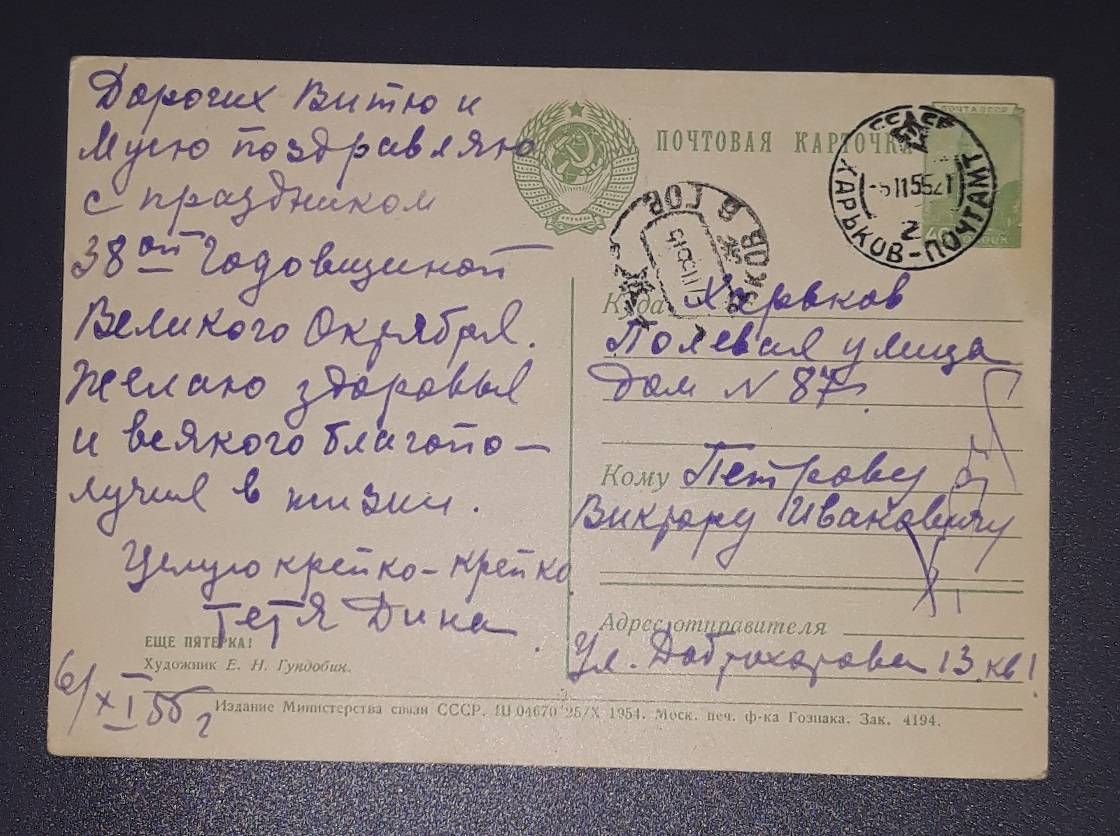 Дорогих Витю и
Мусю поздравляю
с праздником
38ой Годовщиной
Великого Октября.
Желаю здоровья
и всякого благопо-
лучия в жизни.
Целую крепко-крепко
тетя Дина
6/XI 55 г
ЕЩЕ ПЯТЕРКА!
Художник Е. Н. Гундобин.
ПОЧТОВАЯ КАРТОЧКА
ПОЧТА СССР
40
СССР
ХАРЬКОВ-ПОЧТАМТ
Куда Харьков
Полевая улица
дом N 87
Кому Петрову
Виктору Ивановичу
Адрес отправителя
Ул. 13 кв 1
Издание Министерства связи СССР. Ш 04670 25/X 1954. Моск. печ. ф-ка Гознака. Зак. 4194.